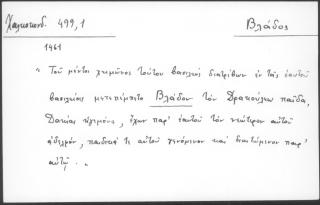 Χαλκοκονδ. 499,1
Βλάδος
1461
"Τοῦ μέντοι χειμῶνος τούτου βασιλεὺς διατρίβων ἐν τοῖς ἑαυτοῦ
βασιλείοις μετεπέμπετο Βλάδον τὸν Δρακούλεω παῖδα,
Δακίας ἡγεμόνα, ἔχων παρ' ἑαυτοῦ τὸν νεώτερον αὐτοῦ
ἀδελφόν, παιδικά τε αὐτοῦ γενόμενον καὶ διαιτώμενον παρ'
αὐτῷ."